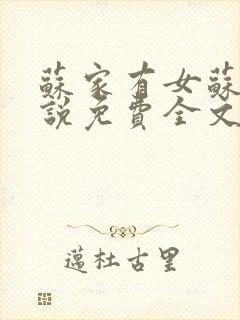 蘇家有女蘇
說免費全文
邁杜古里